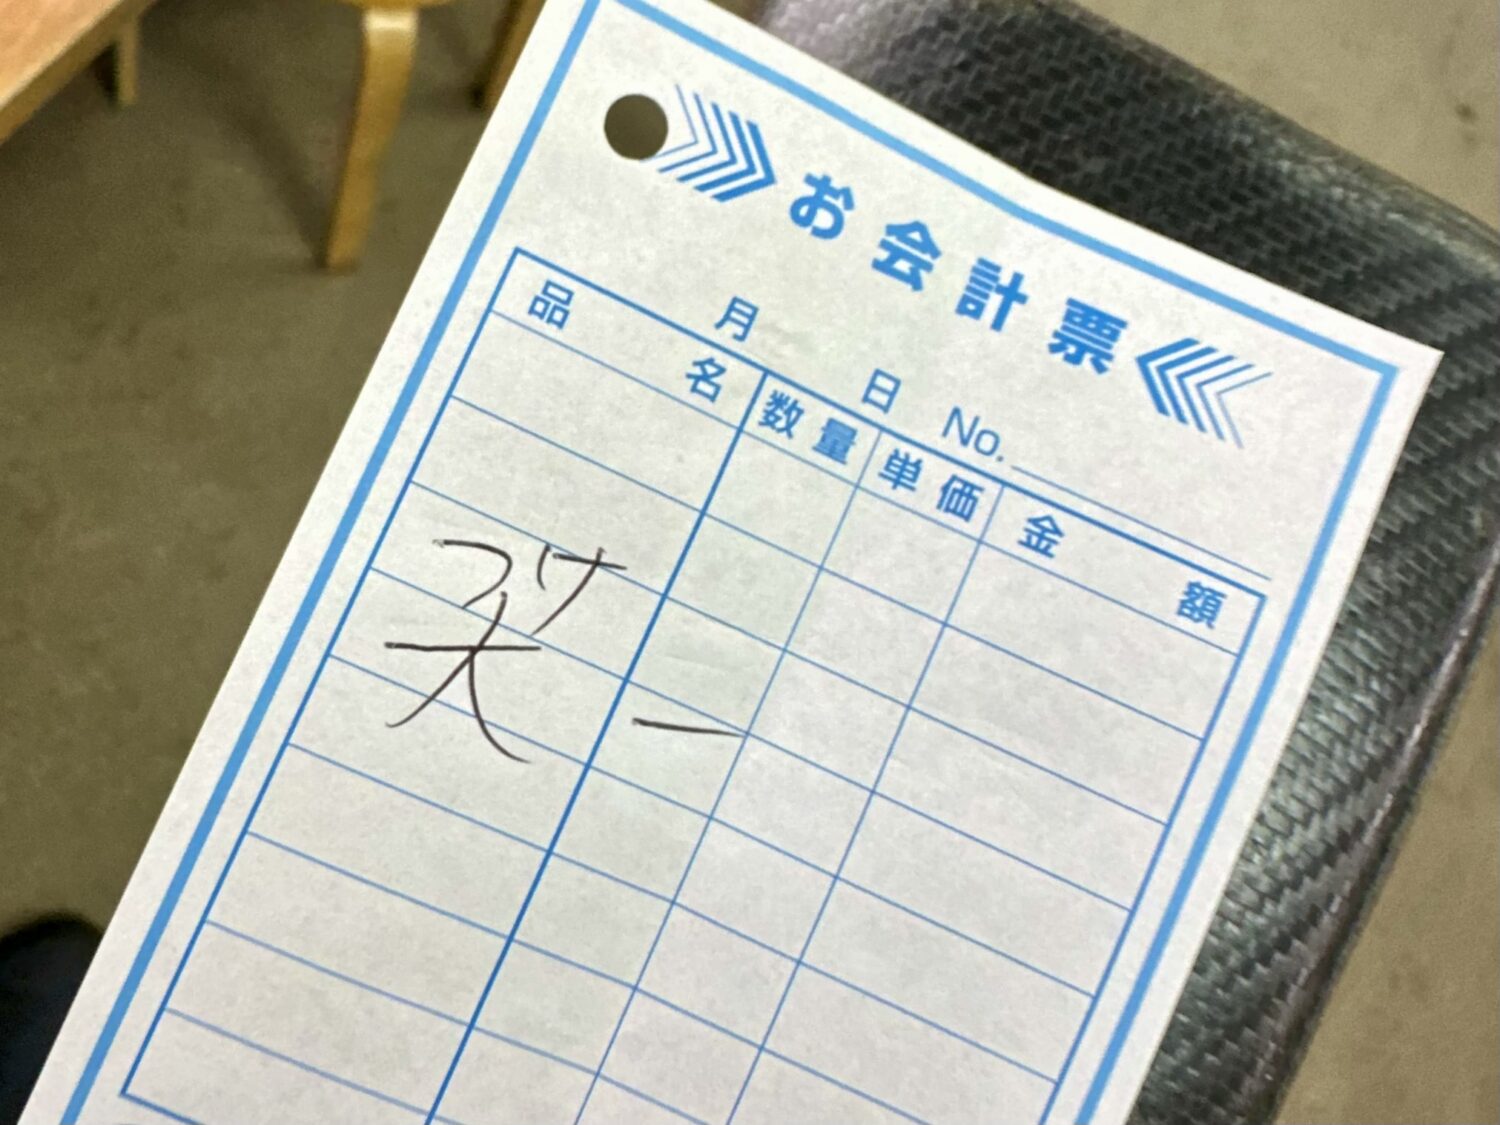 お会計票
月 日 No.
品名 数量 単価 金額
つけ
大 一